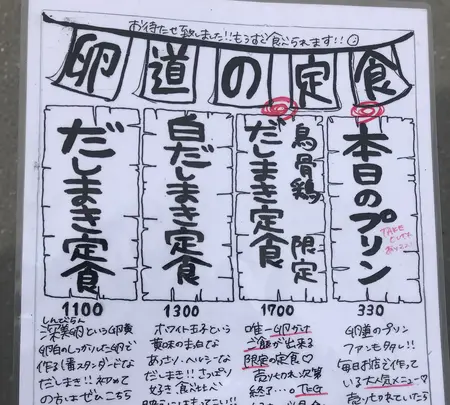 お待たせ致しました!!もうすぐ食べられます!!
卵道の定食
だしまき定食
1100
白だしまき定食
1300
烏骨鶏
だしまき定食
限定
1700
本日のプリン
TAKE
OUTも
330
しんびらん
深美卵という卵黄
卵白のしっかりした卵で
作る1番スタンダードな
だしまき!!初めて
の方はぜひこちら
ホワイト玉子という
黄味の真白な
あっさり・ヘルシーな
だしまき!!さっぱり
好き、食べ比べ
唯一卵かけ
ご飯が出来る
限定の定食♡
売り切れ次第
終了…。TKG
卵道のプリン
ファンも夕タい!!
毎日お店で作って
いる大人気メニュー♡
売り切れていたら